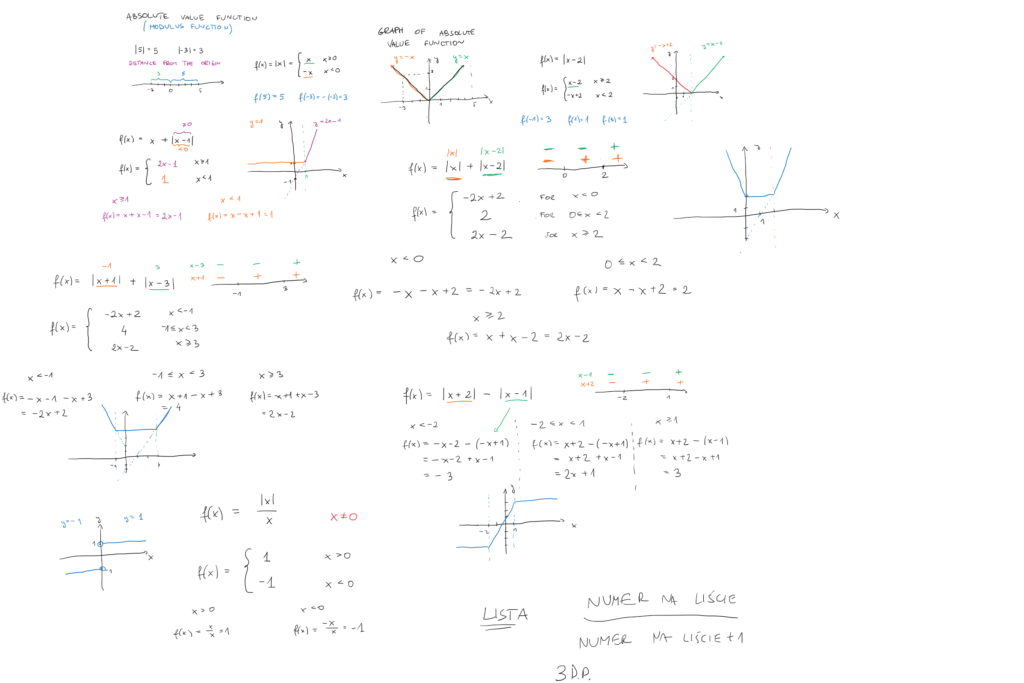 ABSOLUTE VALUE FUNCTION
(MODULUS FUNCTION)
|5|=5 |-3|=3
DISTANCE FROM THE ORIGIN
3 5
-2 0 5
f(x)=|x|= { x x≥0
-x x<0
f(5)=5 f(-3)=-(-3)=3
GRAPH OF ABSOLUTE
VALUE FUNCTION
y=-x y=x
f(x)=|x-2|
f(x)= { x-2 x≥2
-x+2 x<2
f(-1)=3 f(1)=1 f(3)=1
y=-x+2 y=x-2
≥0
f(x)= x + |x-1|
<0
f(x)= { 2x-1 x≥1
1 x<1
x≥1
f(x)=x+x-1=2x-1
x<1
f(x)=x-x+1=1
y=1 y=2x-1
|x| |x-2|
f(x)= |x| + |x-2|
- - +
- + +
0 2
f(x)= { -2x+2 FOR x<0
2 FOR 0≤x<2
2x-2 FOR x≥2
x<0
f(x)= -x-x+2 = -2x+2
0≤x<2
f(x)= x-x+2=2
x≥2
f(x)= x+x-2=2x-2
-1 3
f(x)= |x+1| + |x-3|
x-3 - - +
x+1 - + +
-1 3
f(x)= { -2x+2 x<-1
4 -1≤x<3
2x-2 x≥3
x<-1
f(x)=-x-1-x+3
=-2x+2
-1≤x<3
f(x)=x+1-x+3
=4
x≥3
f(x)=x+1+x-3
=2x-2
f(x)= |x+2| - |x-1|
x-1 - - +
x+2 - + +
-2 1
x<-2
f(x)=-x-2-(-x+1)
=-x-2+x-1
=-3
-2≤x<1
f(x)=x+2-(-x+1)
=x+2+x-1
=2x+1
x≥1
f(x)=x+2-(x-1)
=x+2-x+1
=3
y=-1 y=1
f(x)= |x|/x x≠0
f(x)= { 1 x>0
-1 x<0
x>0
f(x)=x/x=1
x<0
f(x)=-x/x=-1
LISTA
NUMER NA LIŚCIE
NUMER NA LIŚCIE+1
3 D.P.